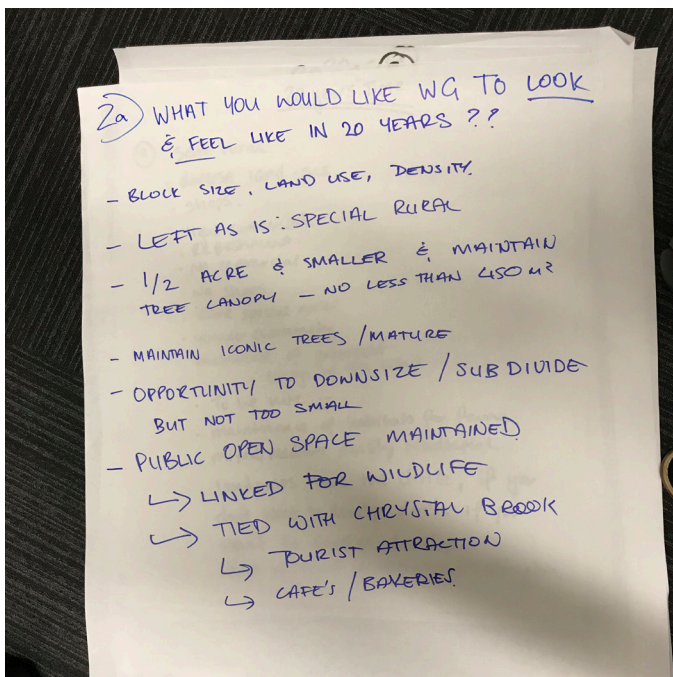 2a) WHAT YOU WOULD LIKE WG TO LOOK
& FEEL LIKE IN 20 YEARS ??
- BLOCK SIZE, LAND USE, DENSITY.
- LEFT AS IS : SPECIAL RURAL
- 1/2 ACRE & SMALLER & MAINTAIN
TREE CANOPY - NO LESS THAN 450 m²
- MAINTAIN ICONIC TREES / MATURE
- OPPORTUNITY TO DOWNSIZE / SUBDIVIDE
BUT NOT TOO SMALL
- PUBLIC OPEN SPACE MAINTAINED.
↳ LINKED FOR WILDLIFE
↳ TIED WITH CHRYSTAL BROOK
↳ TOURIST ATTRACTION
↳ CAFE'S / BAKERIES.